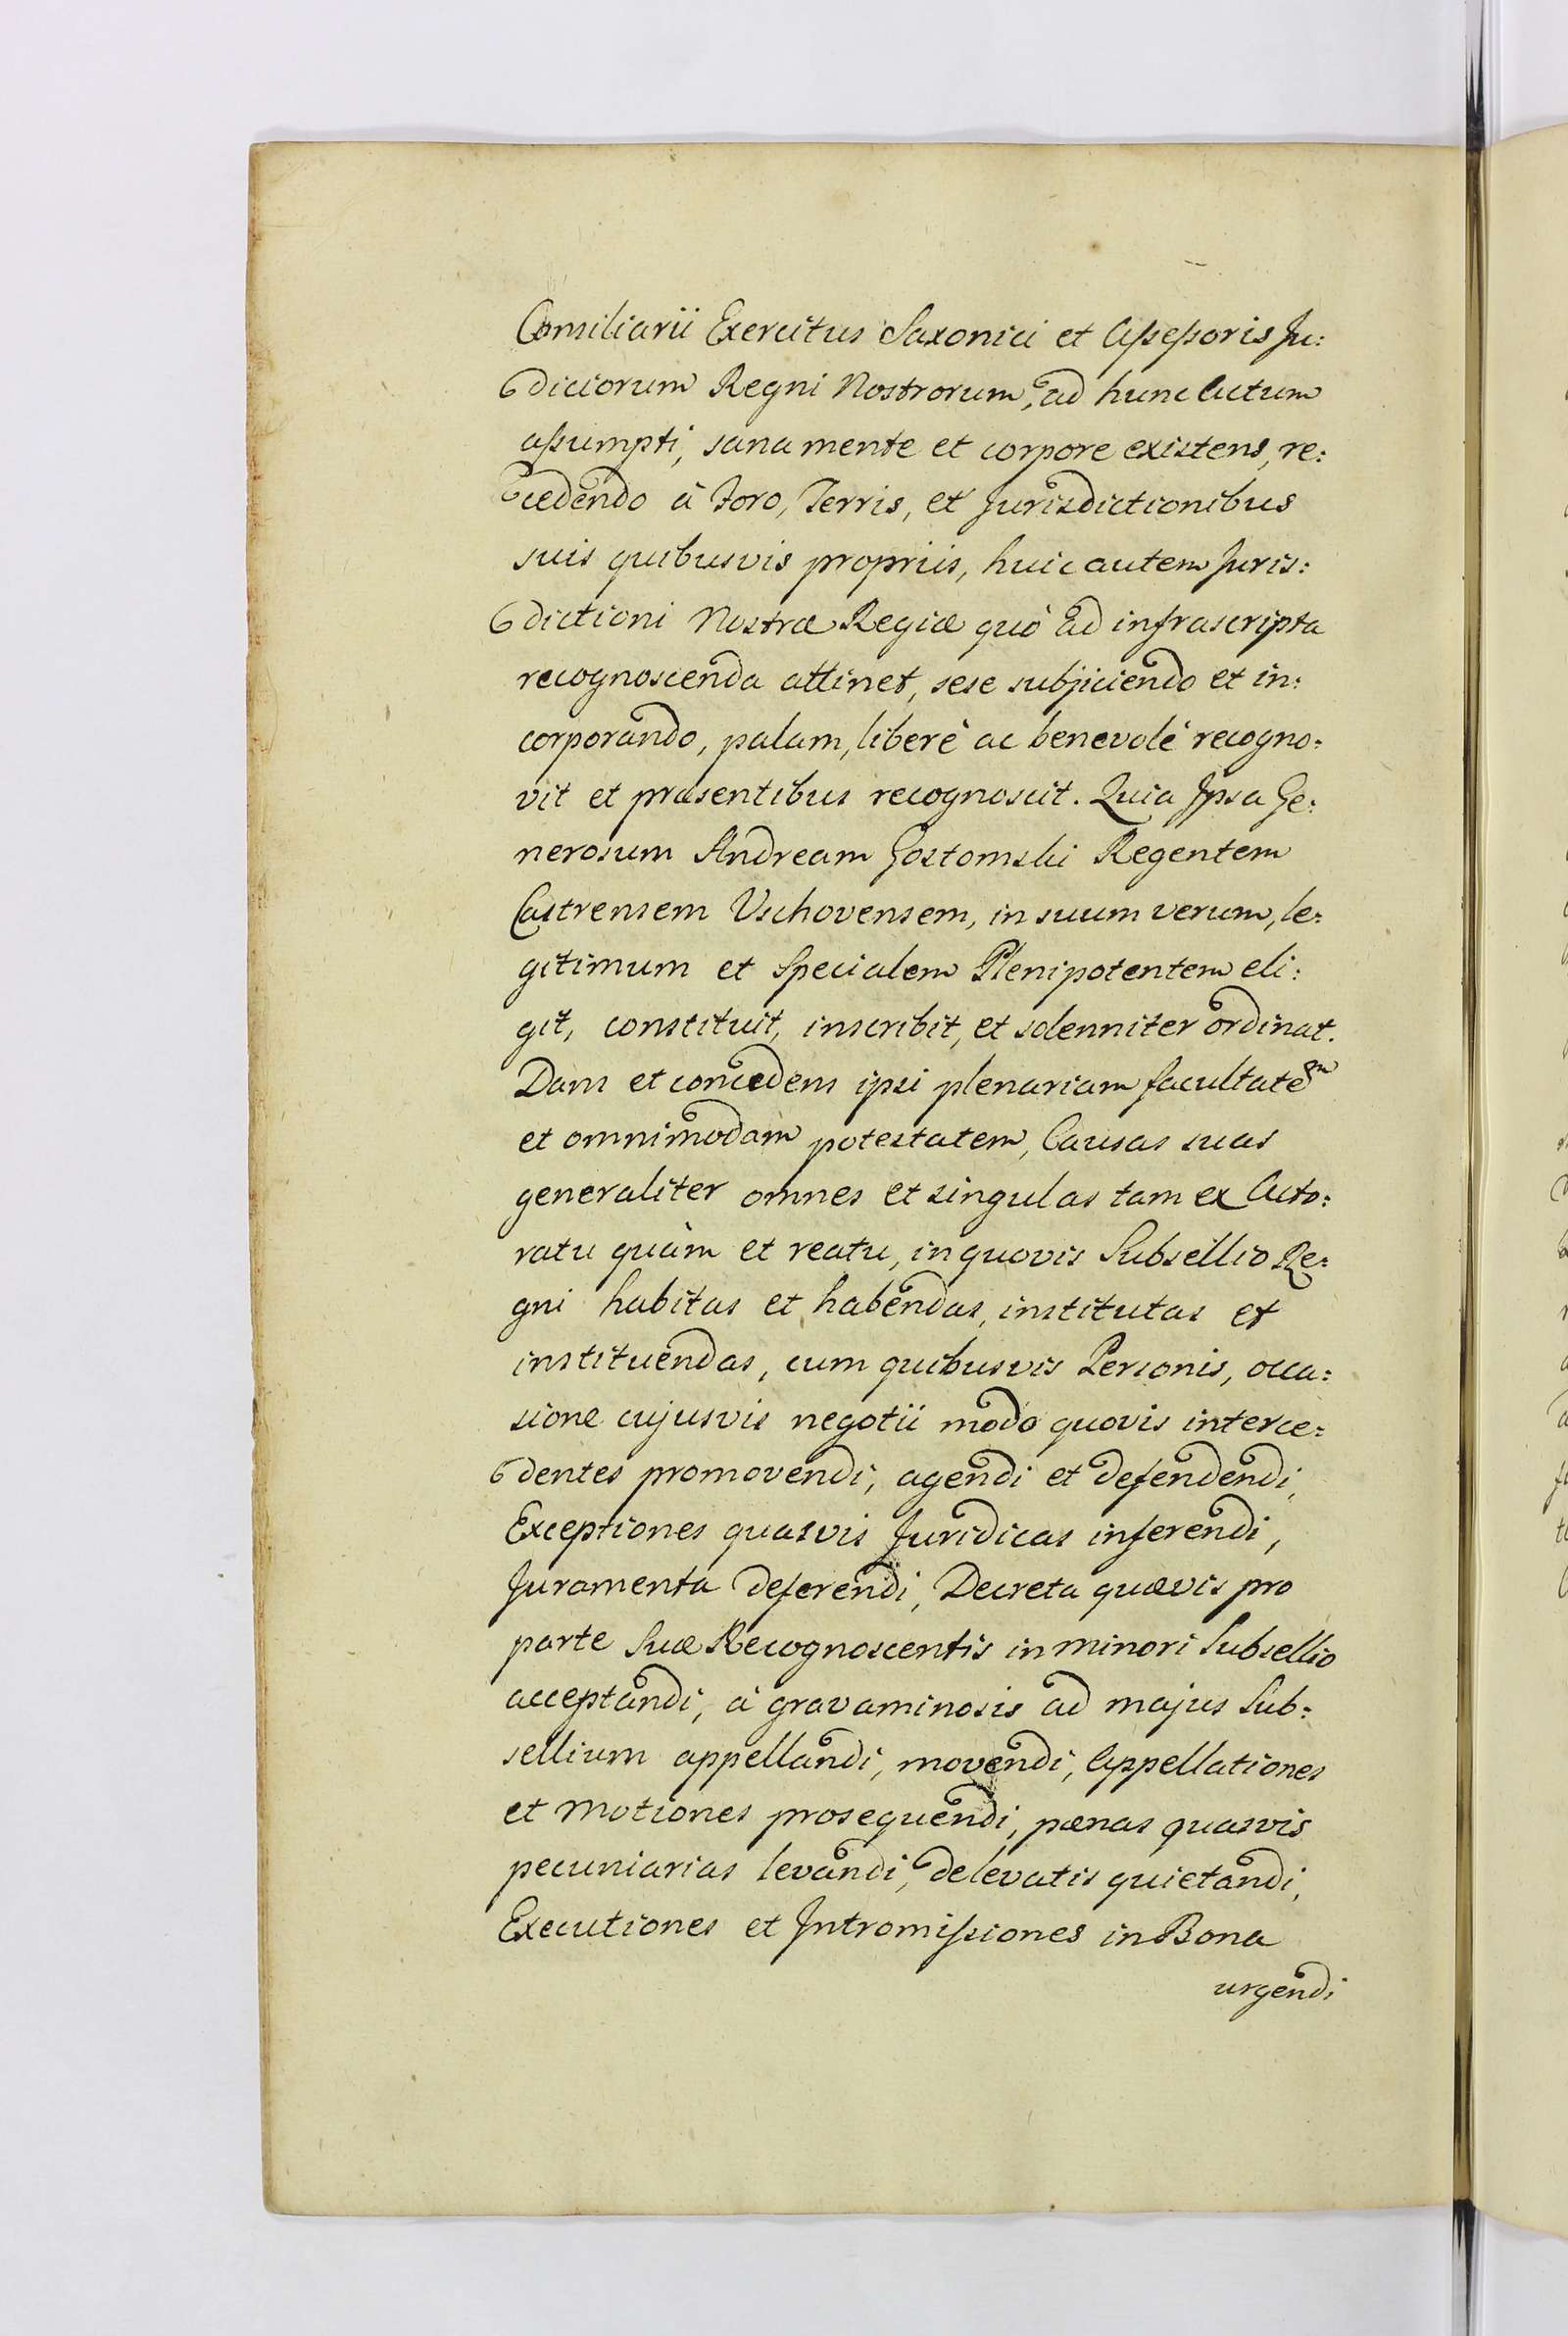 Consiliarii Exercitus Saxonici et Assessoris Ju:
diciorum Regni Nostrorum, ad hunc Actum
assumpti, sana mente et corpore existens, re:
cedendo à Foro, Terris, et Jurisdictionibus
suis quibusvis propriis, huic autem Juris:
dictioni Nostræ Regiæ quò ad infrascripta
recognoscenda attinet, sese subjiciendo et in:
corporando, palam, liberè ac benevolè recogno:
vit et præsentibus recognoscit. Quia Ipsa Ge:
nerosum Andream Gostomski Regentem
Castrensem Vschovensem, in suum verum, le:
gitimum et Specialem Plenipotentem eli:
git, constituit, inscribit, et solenniter ordinat.
Dans et concedens ipsi plenariam facultatem
et omnimodam potestatem, Causas suas
generaliter omnes et singulas tam ex Acto:
ratu quàm et reatu, in quovis Subsellio Re:
gni habitas et habendas, institutas et
instituendas, cum quibusvis Personis, occa:
sione cujusvis negotii modo quovis interce:
dentes promovendi, agendi et defendendi,
Exceptiones quasvis Juridicas inferendi,
Juramenta deferendi, Decreta quævis pro
parte Suæ Recognoscentis in minori Subsellio
acceptandi, à gravaminosis ad majus Sub:
sellium appellandi, movendi, Appellationes
et Motiones prosequendi, pænas quasvis
pecuniarias levandi, de levatis quietandi,
Executiones et Intromissiones in Bona
urgendi